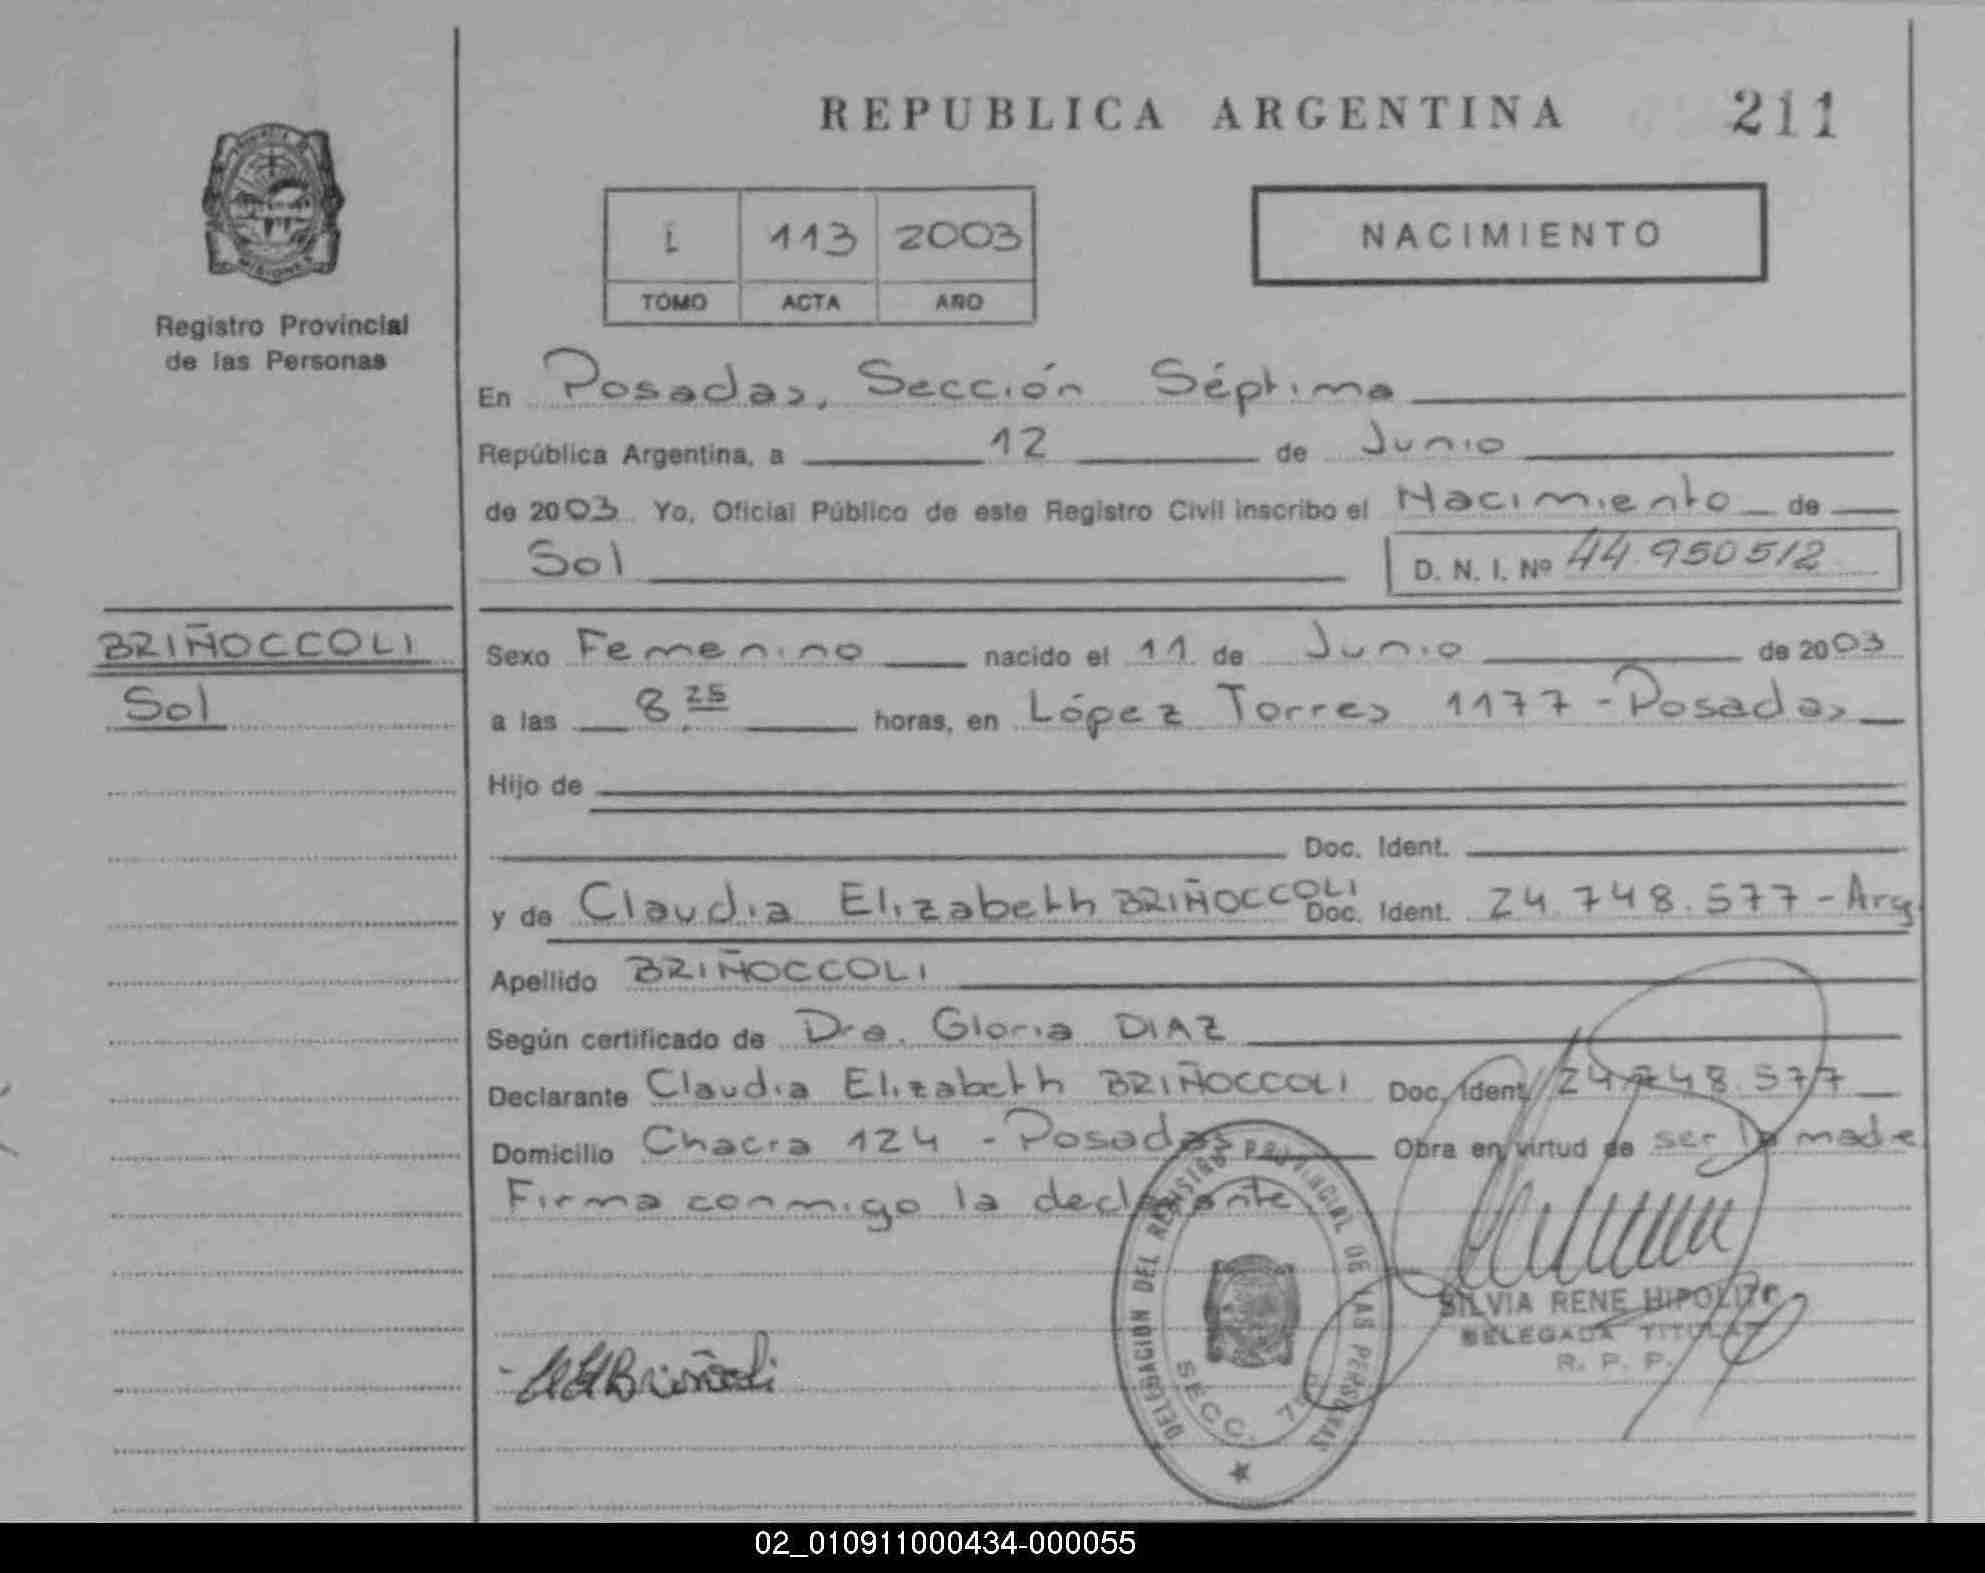 REPUBLICA ARGENTINA
211
I 113 2003
TOMO ACTA AÑO
NACIMIENTO
Registro Provincial
de las Personas
En Posadas, Sección Séptima
República Argentina, a 12 de Junio
de 2003 Yo, Oficial Público de este Registro Civil inscribo el Nacimiento de
Sol D. N. I. Nº 44.950512
BRIÑOCCOLI
Sol
Sexo Femenino nacido el 11 de Junio de 2003
a las 8.25 horas, en López Torres 1177 - Posadas
Hijo de
Doc. Ident.
y de Claudia Elizabeth BRIÑOCCOLI Doc. Ident. 24.748.577 - Arg
Apellido BRIÑOCCOLI
Según certificado de Dra. Gloria DIAZ
Declarante Claudia Elizabeth BRIÑOCCOLI Doc. Ident 24.748.577
Domicilio Chacra 124 - Posadas Obra en virtud de ser la madre
Firma conmigo la declarante
DELEGACION DEL REGISTRO PROVINCIAL DE LAS PERSONAS
SECC. 7
SILVIA RENE HIPOLITO
DELEGADA TITULAR
R. P. P.
02_010911000434-000055